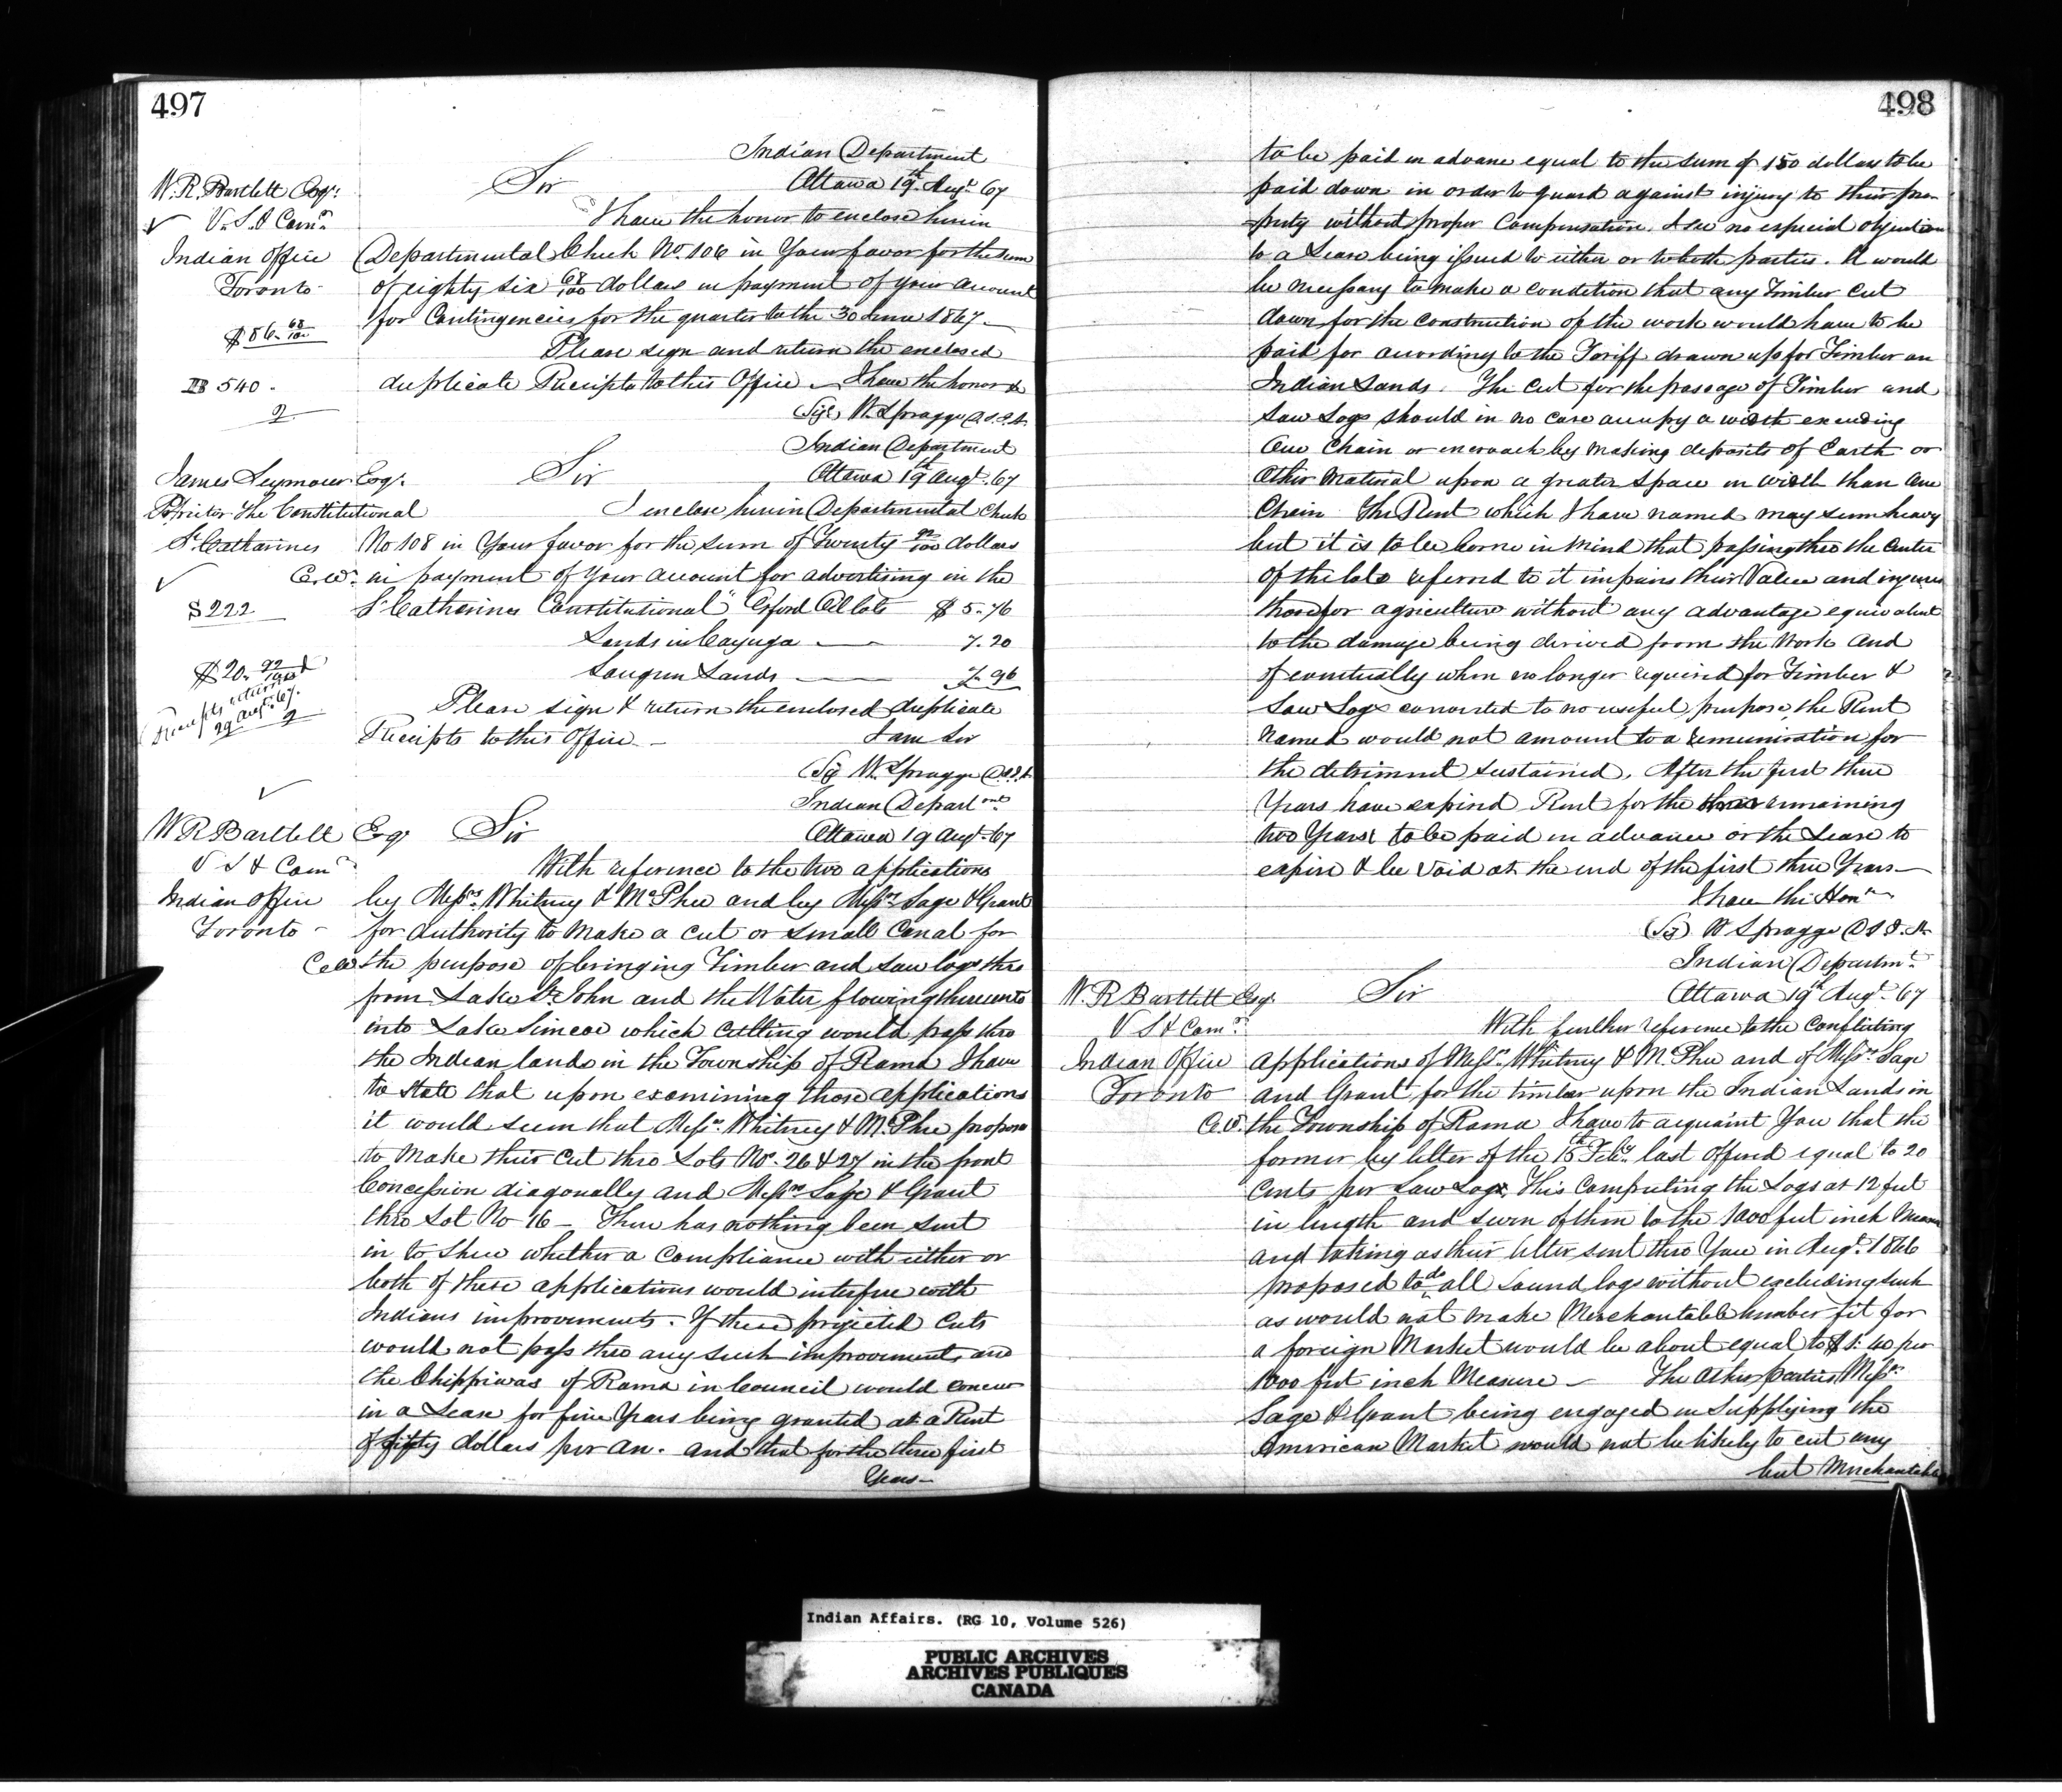 497
Indian Department
Ottawa 19th Augt. 67
W. R. Bartlett Esqr.
Sir
V. S. I Comr.
I have the honor to enclose herein
Indian Office
Departmental Check No. 106 in Your favor for the sum
Toronto
of eighty six 68/100 dollars in payment of your account
$86. 68/100
for Contingencies for the quarter to the 30 June 1867.
Please sign and return the enclosed
540.
duplicate Receipts to this Office. I have the honor &
2
(Sg) W. Spragge D.S.I.A.
Indian Department
Ottawa 19th Augt. 67
James Seymour Esqr.
Sir
Proprietor The Constitutional
I enclose herein Departmental Check
St. Catharines
No 108 in Your favor for the sum of Twenty 92/100 dollars
C.W. in payment of Your account for advertising in the
$222
St Catharines Constitutional" Orford Oil lots $5.76
Lands in Cayuga 7.20
Saugeen Lands 7.96
$20. 92/100
Receipts returned
29 Augt. 67.
2
Please sign & return the enclosed duplicate
Receipts to this Office.
I am Sir
(Sg W. Spragge D.S.I.A.
Indian Departmnt
Ottawa 19 Augt. 67
W R Bartlett Esqr
Sir
V S I Comr
With reference to the two applications
Indian Office
by Messrs. Whitney & McPhee and by Messrs Sage & Grant
Toronto
for authority to make a cut or small Canal for
C W the purpose of bringing Timber and Saw logs thro
from Lake St. John and the Water flowing thereunto
into Lake Simcoe which cutting would pass thro
the Indian lands in the Township of Rama I have
to state that upon examining those applications
it would seem that Messrs. Whitney & McPhee propose
to make their cut thro Lots No. 26 & 27 in the front
Concession diagonally and Messrs Sage & Grant
thro Lot No 16 - There has nothing been sent
in to shew whether a compliance with either or
both of these applications would interfere with
Indians improvements. If these projected Cuts
would not pass thro any such improvements and
the Chippewas of Rama in Council would concur
in a Lease for five Years being granted at a Rent
of fifty dollars per an. and that for the three first
Years
498
to be paid in advance equal to the sum of 150 dollars to be
paid down in order to guard against injury to their pro-
-perty without proper Compensation. I see no especial objection
to a Lease being issued to either or to both parties. It would
be necessary to make a condition that any Timber cut
down for the construction of the work would have to be
paid for according to the Tariff drawn up for Timber on
Indian Lands. The cut for the passage of Timber and
Saw Logs should in no case occupy a width exceeding
One Chain or encroach by making deposits of Earth or
Other Material upon a greater space in width than One
Chain. The Rent which I have named may seem heavy
but it is to be borne in mind that passing thro the Center
of the lots referred to it impairs their Value and injures
those for agriculture without any advantage equivalent
to the damage being derived from the Work and
if eventually when no longer required for Timber &
Saw Logs converted to no useful purpose, the Rent
named would not amount to a remuneration for
the detriment sustained. After the first three
Years have expired Rent for the remaining
two Years to be paid in advance or the Lease to
expire & be void at the end of the first three Years
I have the Honr
(Sg) W Spragge D.S.I.A.
Indian Departmt.
Ottawa 19th Augt. 67
W. R Bartlett Esqr.
Sir
V S I Comr.
With further reference to the Conflicting
Indian Office
applications of Messrs. Whitney & McPhee and of Messrs. Sage
Toronto
and Grant for the timber upon the Indian Lands in
C.W. the Township of Rama I have to acquaint You that the
former by letter of the 15th Feby. last offered equal to 20
Cents per Saw Log, This Computing the Logs at 12 feet
in length and seven of them to the 1000 feet inch Measure
and taking as their letter sent thro You in Augt. 1866
proposed to do, all Sound logs without excluding such
as would not make Merchantable lumber fit for
a foreign Market would be about equal to $1.40 per
1000 feet inch Measure - The Other parties Messrs.
Sage & Grant being engaged in Supplying the
American Market would not be likely to cut any
but Merchantable
Indian Affairs. (RG 10, Volume 526)
PUBLIC ARCHIVES
ARCHIVES PUBLIQUES
CANADA